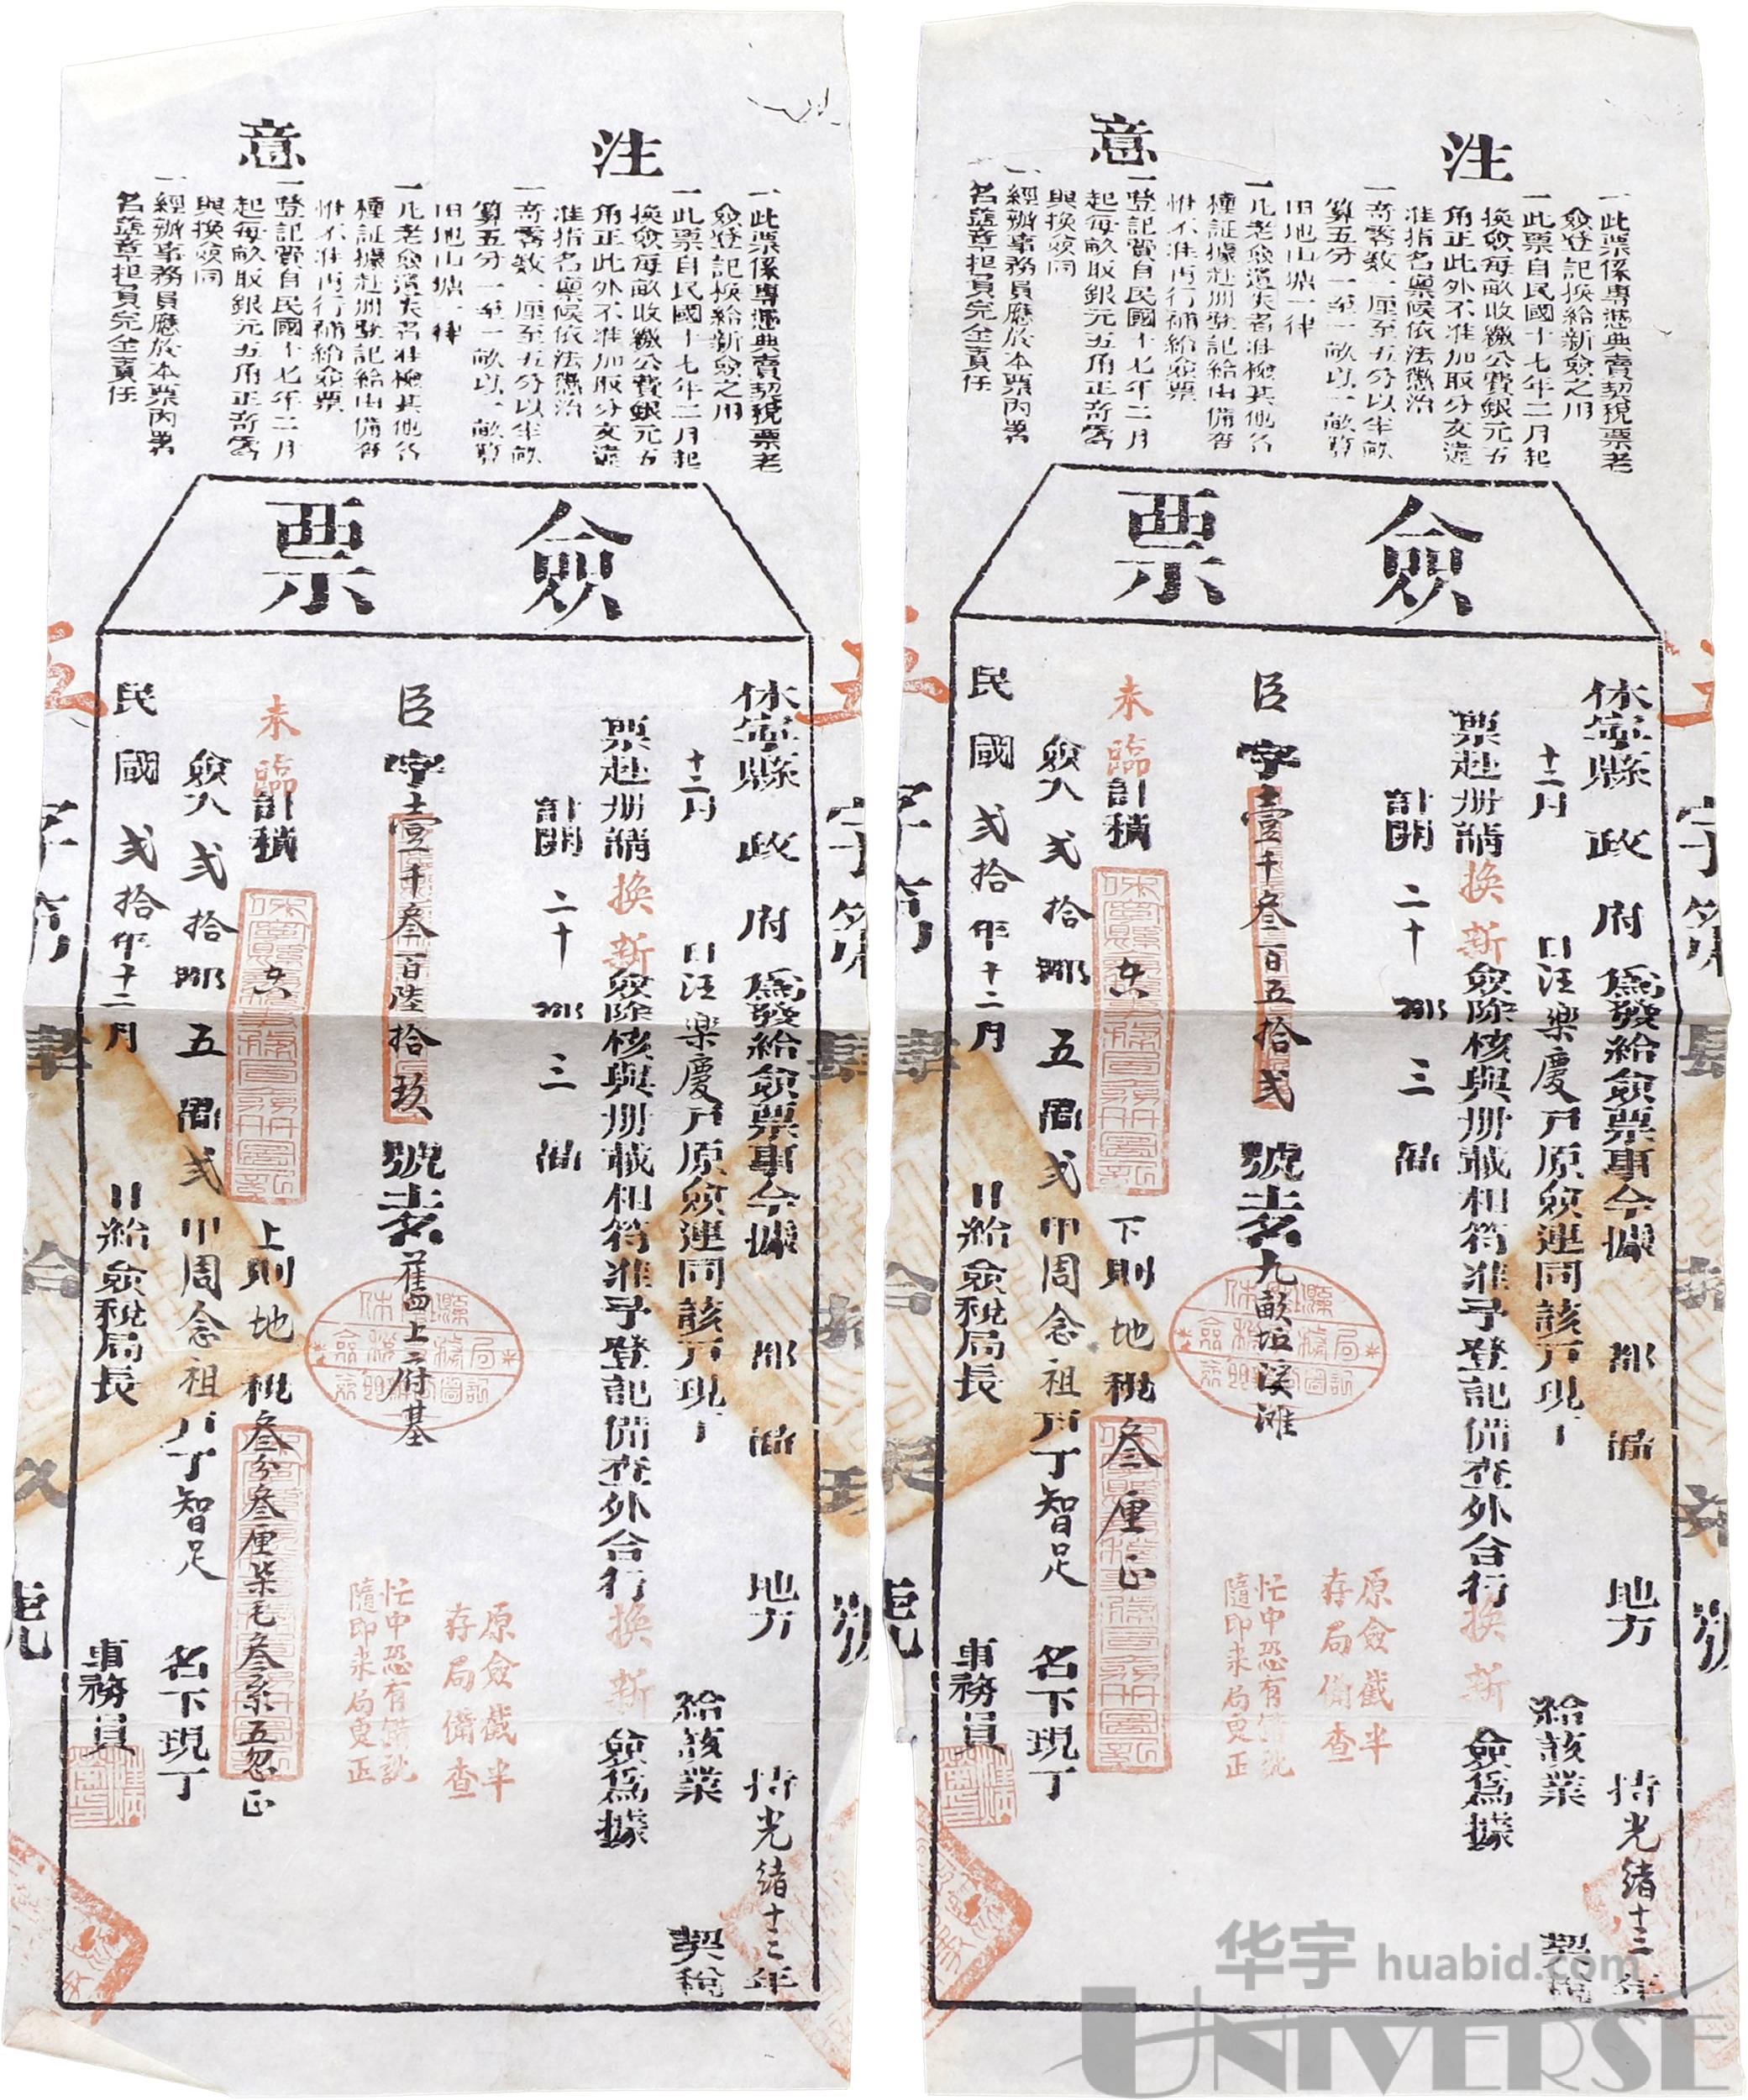 注意
一此票係專憑典賣契稅票老
僉登記換給新僉之用
一此票自民國十七年二月起
換僉每畝收繳公費銀元五
角正此外不准加取分文違
准指名稟候依法懲治
一奇零數一厘至五分以半畝
算五分一至一畝以一畝算
田地山塘一律
一凡老僉遺失者准檢其他各
種証據赴冊登記給由備查
惟不准再行補給僉票
一登記費自民國十七年二月
起每畝取銀元五角正奇零
與換僉同
一經辦事務員應於本票內署
名蓋章担負完全責任
僉票
休寧縣政府為發給僉票事今據 都 啚 地方 持光緒十二年
十二月 日汪樂慶戶原僉連同該戶現丁 給該業 契稅
票赴冊請換新僉除核與冊載相符准予登記備查外合行換新僉為據
計開 二十都三啚
臣字壹千叁百陸拾玖號土名舊四上府基
未臨計積 上則地稅叁分叁厘柒毛叁系五忽正
僉入弍拾都五啚弍甲周念祖戶丁智足名下現丁
民國弍拾年十二月 日給僉稅局長 事務員
原僉截半
存局備查
忙中恐有錯訛
隨印來局更正
注意
一此票係專憑典賣契稅票老
僉登記換給新僉之用
一此票自民國十七年二月起
換僉每畝收繳公費銀元五
角正此外不准加取分文違
准指名稟候依法懲治
一奇零數一厘至五分以半畝
算五分一至一畝以一畝算
田地山塘一律
一凡老僉遺失者准檢其他各
種証據赴冊登記給由備查
惟不准再行補給僉票
一登記費自民國十七年二月
起每畝取銀元五角正奇零
與換僉同
一經辦事務員應於本票內署
名蓋章担負完全責任
僉票
休寧縣政府為發給僉票事今據 都 啚 地方 持光緒十三年
十二月 日汪樂慶戶原僉連同該戶現丁 給該業 契稅
票赴冊請換新僉除核與冊載相符准予登記備查外合行換新僉為據
計開 二十都三啚
臣字壹千叁百五拾弍號土名九畝垣溪灘
未臨計積 下則地稅叁厘正
僉入弍拾都五啚弍甲周念祖戶丁智足名下現丁
民國弍拾年十二月 日給僉稅局長 事務員
原僉截半
存局備查
忙中恐有錯訛
隨印來局更正
华宇 huabid.com
UNIVERSE